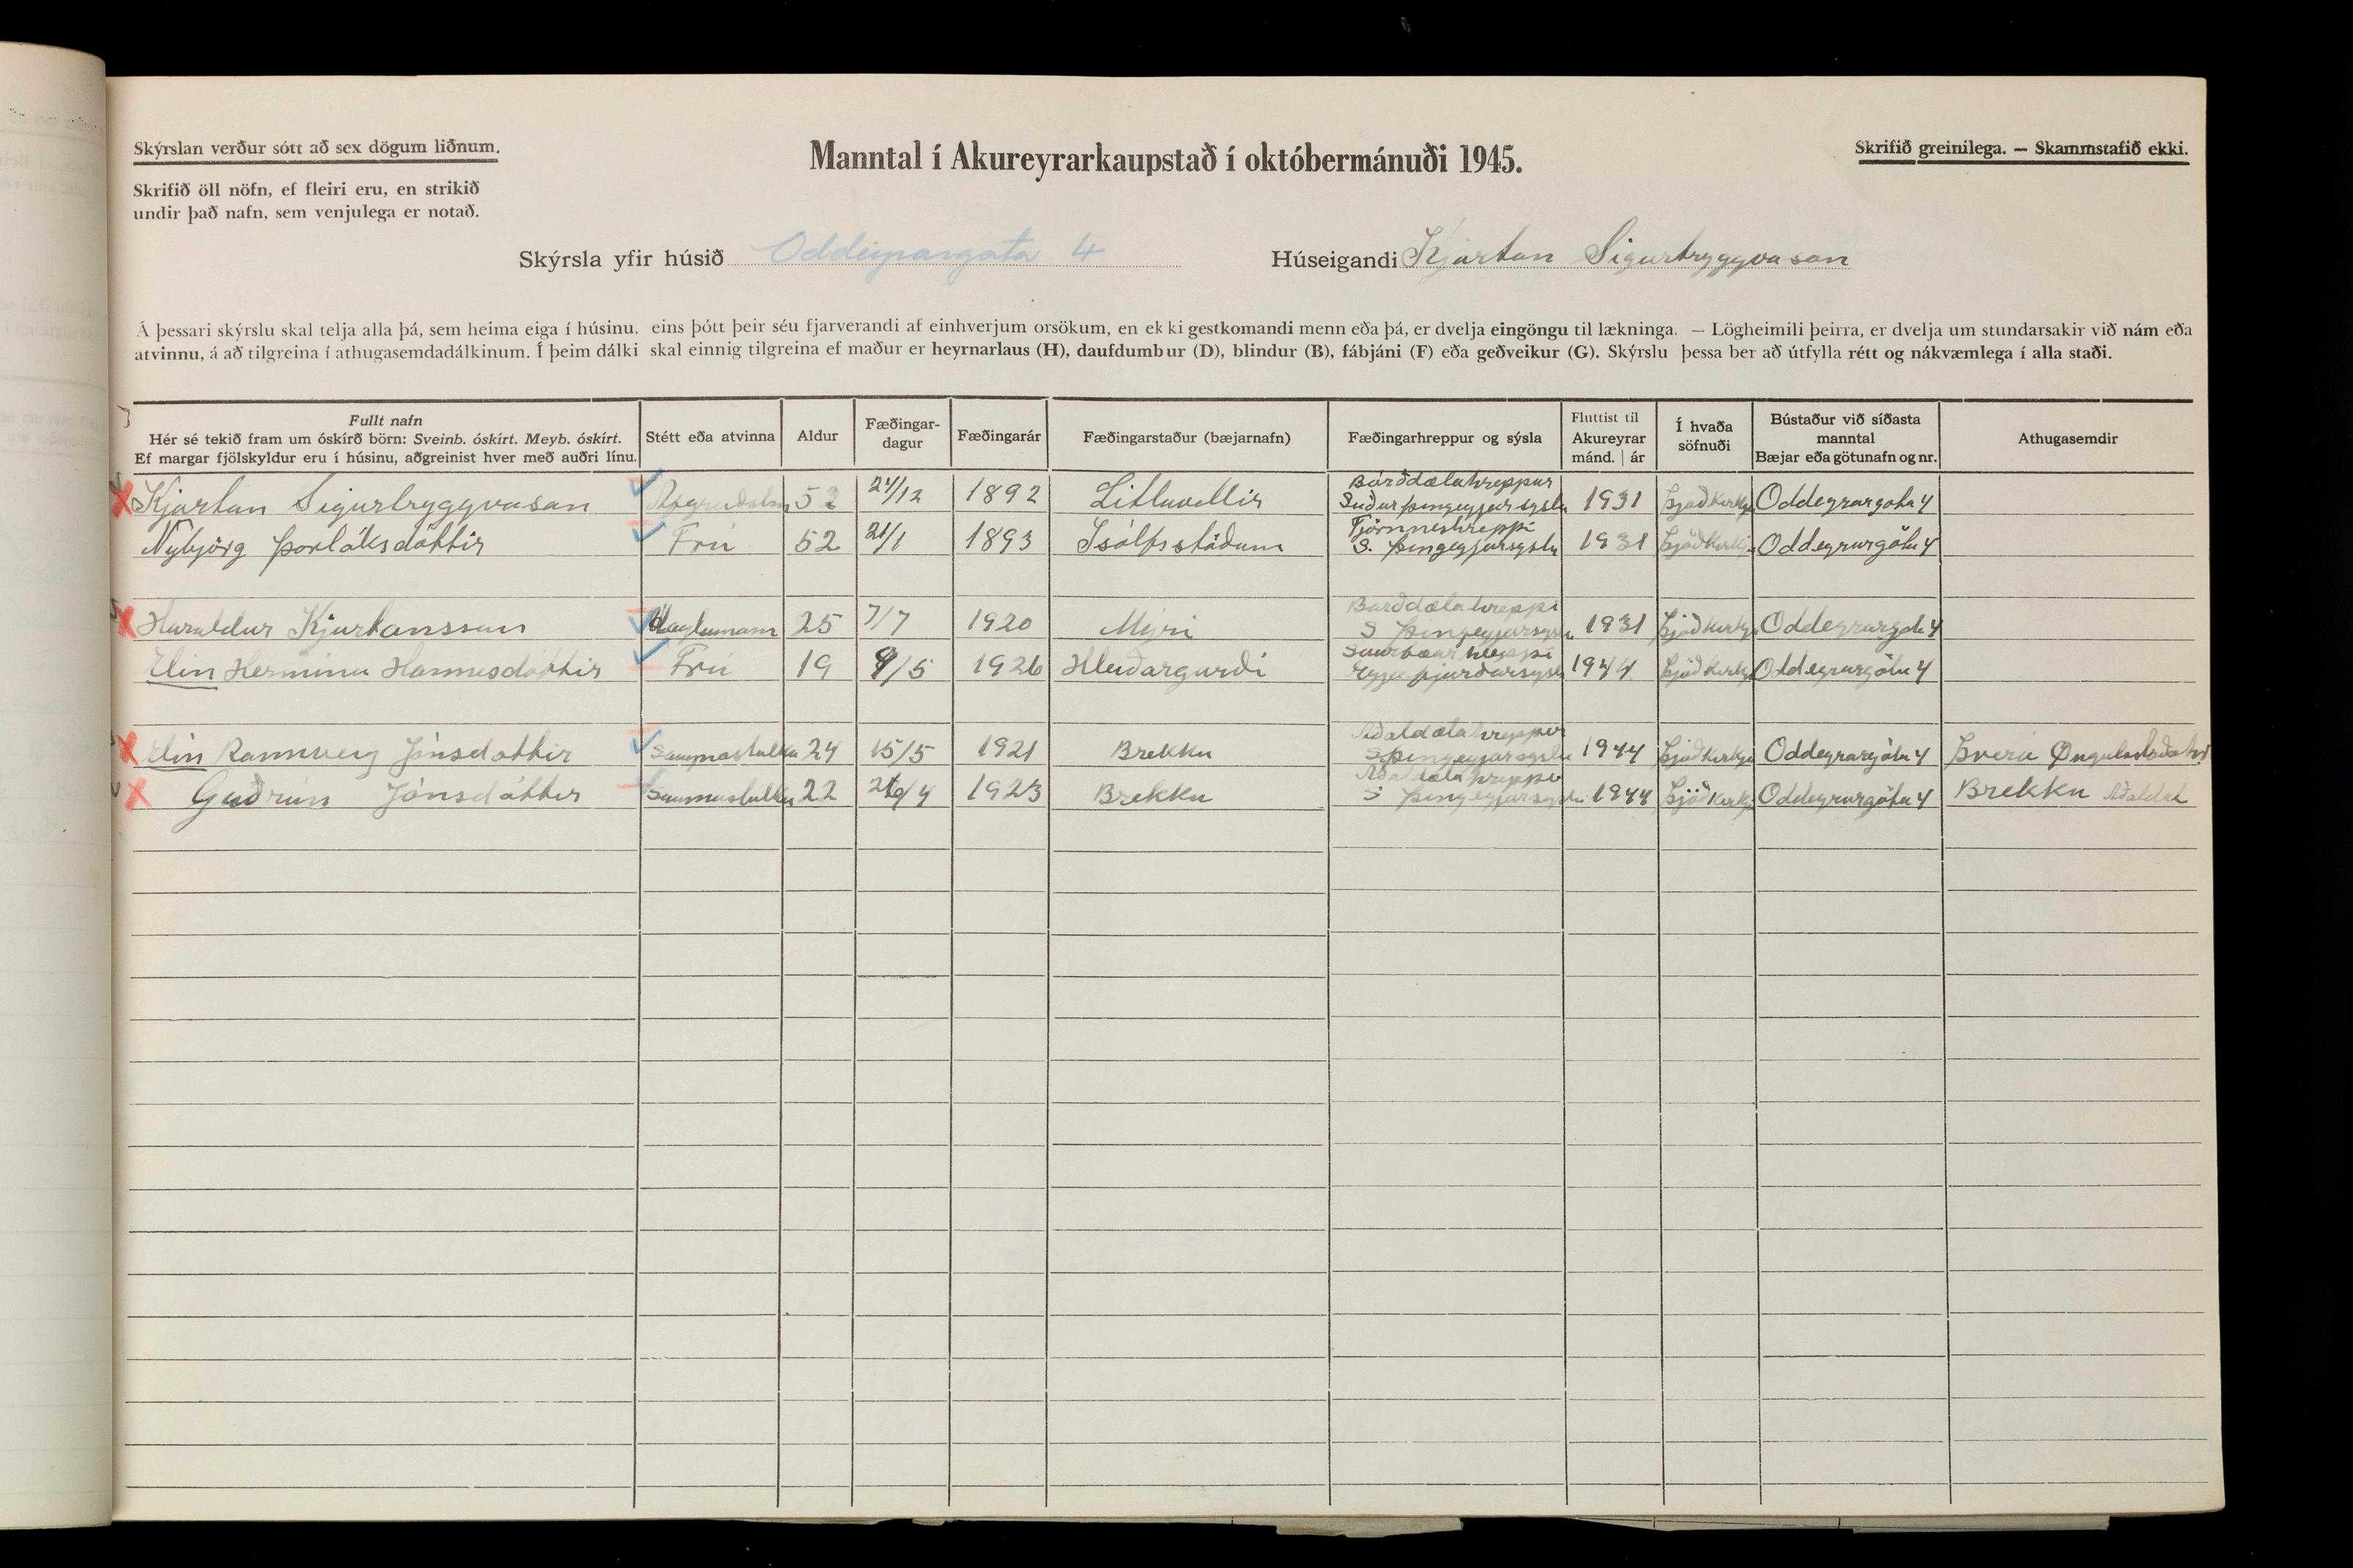 Skýrslan verður sótt að sex dögum liðnum.
Manntal í Akureyrarkaupstað í októbermánuði 1945.
Skrifið greinilega. — Skammstafið ekki.
Skrifið öll nöfn, ef fleiri eru, en strikið
undir það nafn, sem venjulega er notað.
Skýrsla yfir húsið Oddeyrargata 4 Húseigandi Kjartan Sigurtryggvason
Á þessari skýrslu skal telja alla þá, sem heima eiga í húsinu, eins þótt þeir séu fjarverandi af einhverjum orsökum, en ekki gestkomandi menn eða þá, er dvelja eingöngu til lækninga. — Lögheimili þeirra, er dvelja um stundarsakir við nám eða
atvinnu, á að tilgreina í athugasemdadálkinum. Í þeim dálki skal einnig tilgreina ef maður er heyrnarlaus (H), daufdumbur (D), blindur (B), fábjáni (F) eða geðveikur (G). Skýrslu þessa ber að útfylla rétt og nákvæmlega í alla staði.
Fullt nafn
Hér sé tekið fram um óskírð börn: Sveinb. óskírt. Meyb. óskírt.
Ef margar fjölskyldur eru í húsinu, aðgreinist hver með auðri línu.
Stétt eða atvinna
Aldur
Fæðingar-
dagur
Fæðingarár
Fæðingarstaður (bæjarnafn)
Fæðingarhreppur og sýsla
Fluttist til
Akureyrar
mánd. | ár
Í hvaða
söfnuði
Bústaður við síðasta
manntal
Bæjar eða götunafn og nr.
Athugasemdir
Kjartan Sigurtryggvason 52 21/12 1892 Litluvellir Bárðdælahreppur Suðurþingeyjarsýslu 1931 Þjóðkirkju Oddeyrargötu 4
Nýbjörg Þorláksdóttir Frú 52 21/1 1893 Ísólfsstöðum Tjörnneshreppi S. Þingeyjarsýslu 1931 Þjóðkirkju Oddeyrargötu 4
Haraldur Kjartansson 25 7/7 1920 Mýri Bárðdælahreppi S Þingeyjarsýslu 1931 Þjóðkirkju Oddeyrargötu 4
Elín Hermína Hannesdóttir Frú 19 9/5 1926 Hleiðargarði Saurbæarhreppi Eyjafjarðarsýslu 1944 Þjóðkirkju Oddeyrargötu 4
Elín Rannveig Jónsdóttir Saumastulka 24 15/5 1921 Brekku Aðaldælahreppur S Þingeyjarsýslu 1944 Þjóðkirkju Oddeyrargötu 4 Þverá
Guðrún Jónsdóttir Saumastulka 22 26/4 1923 Brekku Aðaldælahreppur S Þingeyjarsýslu 1944 Þjóðkirkju Oddeyrargötu 4 Brekku Aðaldal